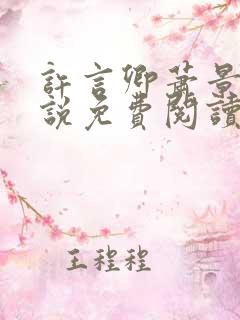 許言卿蕭景
說免費閱讀
王程程